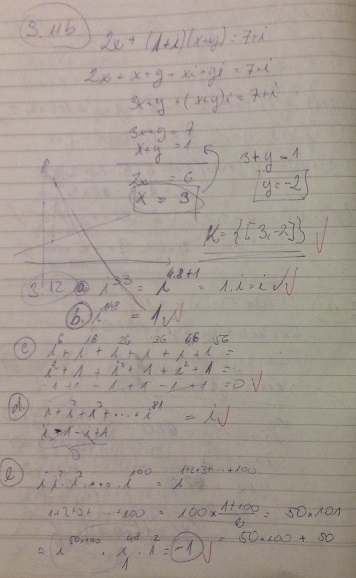 3.11b
2x + (1+i)(x+y) = 7+i
2x + x + y + xi + yi = 7+i
3x+y + (x+y)i = 7+i
3x+y = 7
x+y = 1
2x = 6
x = 3
3+y = 1
y = -2
K = {[3,-2]}
3.12 a i^33 = i^4.8+1 = 1.i = i
b. = 1
c i^6 + i^16 + i^26 + i^36 + i^46 + i^56 =
i^2 + 1 + i^2 + 1 + i^2 + 1 =
-1+1-1+1-1+1 = 0
d. i + i^2 + i^3 + ... + i^81 = i
i-1-i+1
0
e i.i^2.i^3....i^100 = i^1+2+3+...+100
1+2+3+...+100 = 100 x 1+100/2 = 50x101
= 50x100 + 50
= i^50x100 . i^48 . i^2 = -1
1